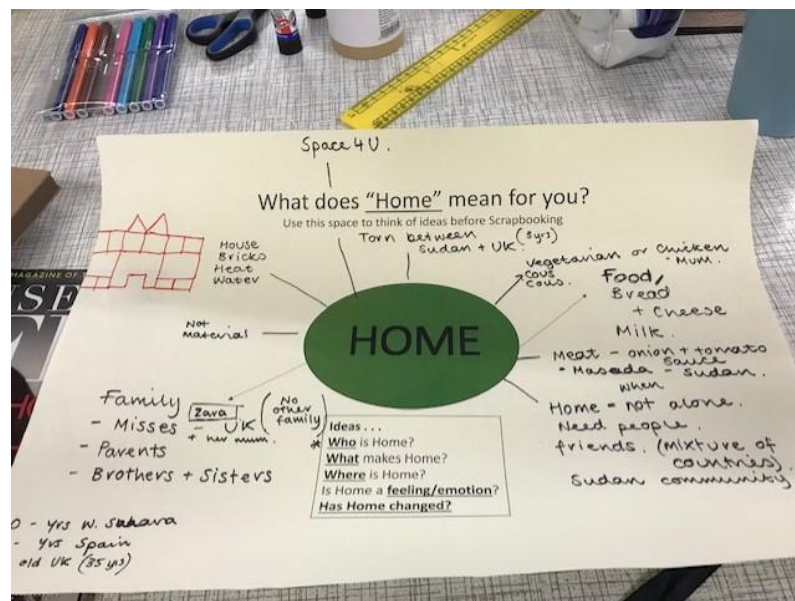 Space 4 U.
What does "Home" mean for you?
Use this space to think of ideas before Scrapbooking
Torn between (5yrs)
Sudan + UK.
House
Bricks
Heat
Water
Not
material
vegetarian or chicken
cous
cous.
- Mum.
Food,
Bread
+ cheese
Milk.
Meat - onion + tomato
sauce
- Masada - Sudan.
when
Home = not alone.
Need people.
friends. (mixture of
countries).
Sudan community
HOME
Family
- Misses - UK
Zara
+ her mum.
(No
other
family)
- Parents
- Brothers + Sisters
Ideas . . .
* Who is Home?
What makes Home?
Where is Home?
Is Home a feeling/emotion?
Has Home changed?
0 - yrs W. Sahara
- yrs Spain
old UK (35 yrs)
MAGAZINE OF
USE